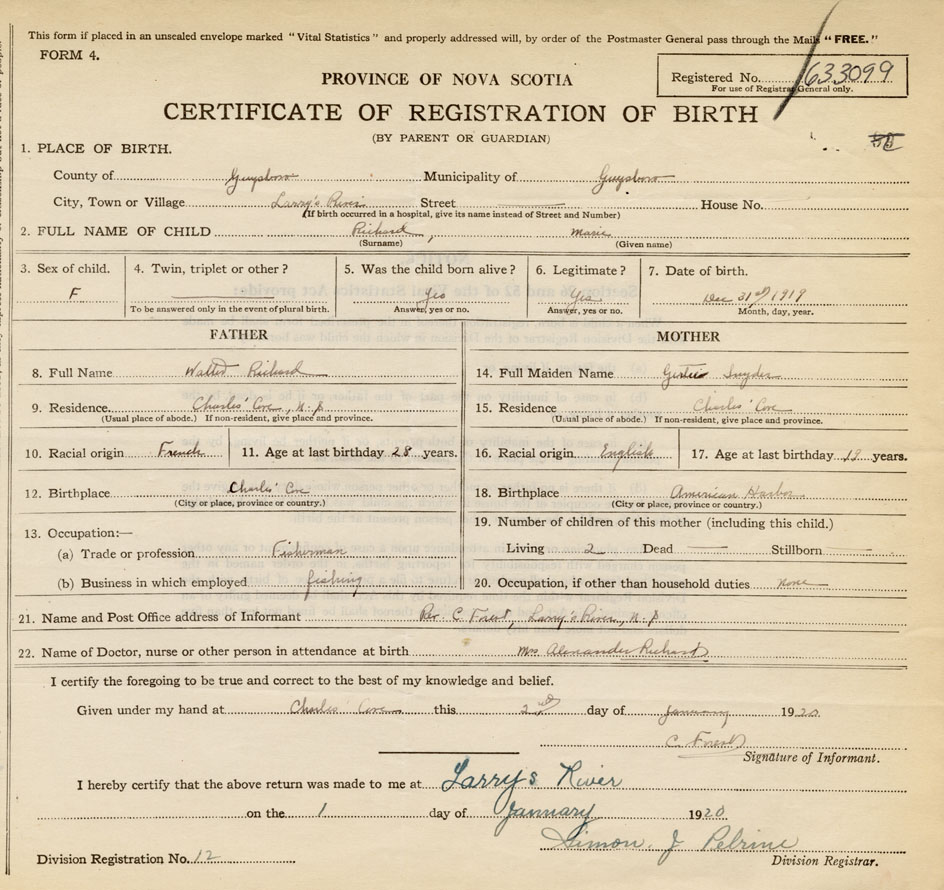 This form if placed in an unsealed envelope marked "Vital Statistics" and properly addressed will, by order of the Postmaster General pass through the Mails "FREE."
FORM 4.
PROVINCE OF NOVA SCOTIA
Registered No. 633099
For use of Registrar General only.
CERTIFICATE OF REGISTRATION OF BIRTH
(BY PARENT OR GUARDIAN)
1. PLACE OF BIRTH.
County of Guysboro Municipality of Guysboro
City, Town or Village Larry's River Street House No.
(If birth occurred in a hospital, give its name instead of Street and Number)
2. FULL NAME OF CHILD Richard, Marie
(Surname) (Given name)
3. Sex of child. 4. Twin, triplet or other? 5. Was the child born alive? 6. Legitimate? 7. Date of birth.
F Yes Yes Dec 31st 1919
To be answered only in the event of plural birth. Answer, yes or no. Answer, yes or no. Month, day, year.
FATHER MOTHER
8. Full Name Walter Richard 14. Full Maiden Name Gertie Snyder
9. Residence Charles' Cove, N.S 15. Residence Charles' Cove
(Usual place of abode.) If non-resident, give place and province. (Usual place of abode.) If non-resident, give place and province.
10. Racial origin French 11. Age at last birthday 28 years. 16. Racial origin English 17. Age at last birthday 19 years.
12. Birthplace Charles' Cove 18. Birthplace American Harbor
(City or place, province or country.) (City or place, province or country.)
13. Occupation:— 19. Number of children of this mother (including this child.)
(a) Trade or profession Fisherman Living 2 Dead Stillborn
(b) Business in which employed fishing 20. Occupation, if other than household duties none
21. Name and Post Office address of Informant Rev. C Forest, Larry's River, N.S
22. Name of Doctor, nurse or other person in attendance at birth Mrs Alexander Richard
I certify the foregoing to be true and correct to the best of my knowledge and belief.
Given under my hand at Charles' Cove this 2nd day of January 1920
C. Forest
Signature of Informant.
I hereby certify that the above return was made to me at Larrys River
on the 1 day of January 1920
Simon J Pelrine
Division Registration No. 12 Division Registrar.